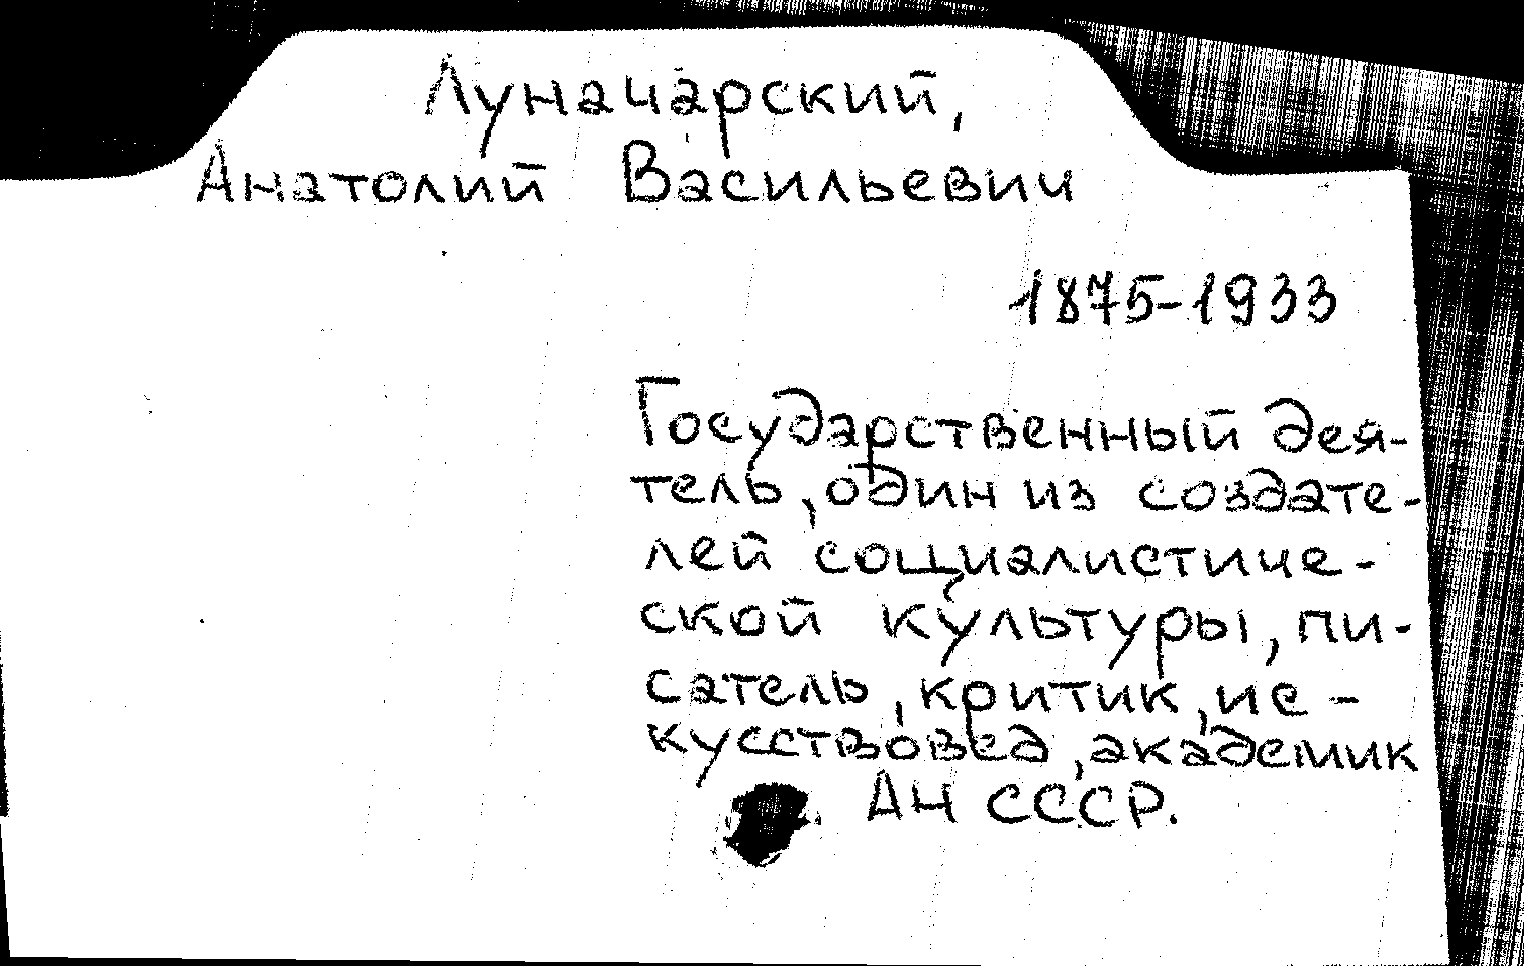 Луначарский,
Анатолий Васильевич
1875-1933
Государственный дея-
тель, один из создате-
лей социалистиче-
ской культуры, пи-
сатель, критик, ис-
кусствовед, академик
АН СССР.